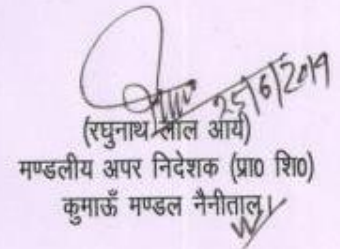 25/6/2019
(रघुनाथ लाल आर्य)
मण्डलीय अपर निदेशक (प्रा0 शि0)
कुमाऊँ मण्डल नैनीताल।